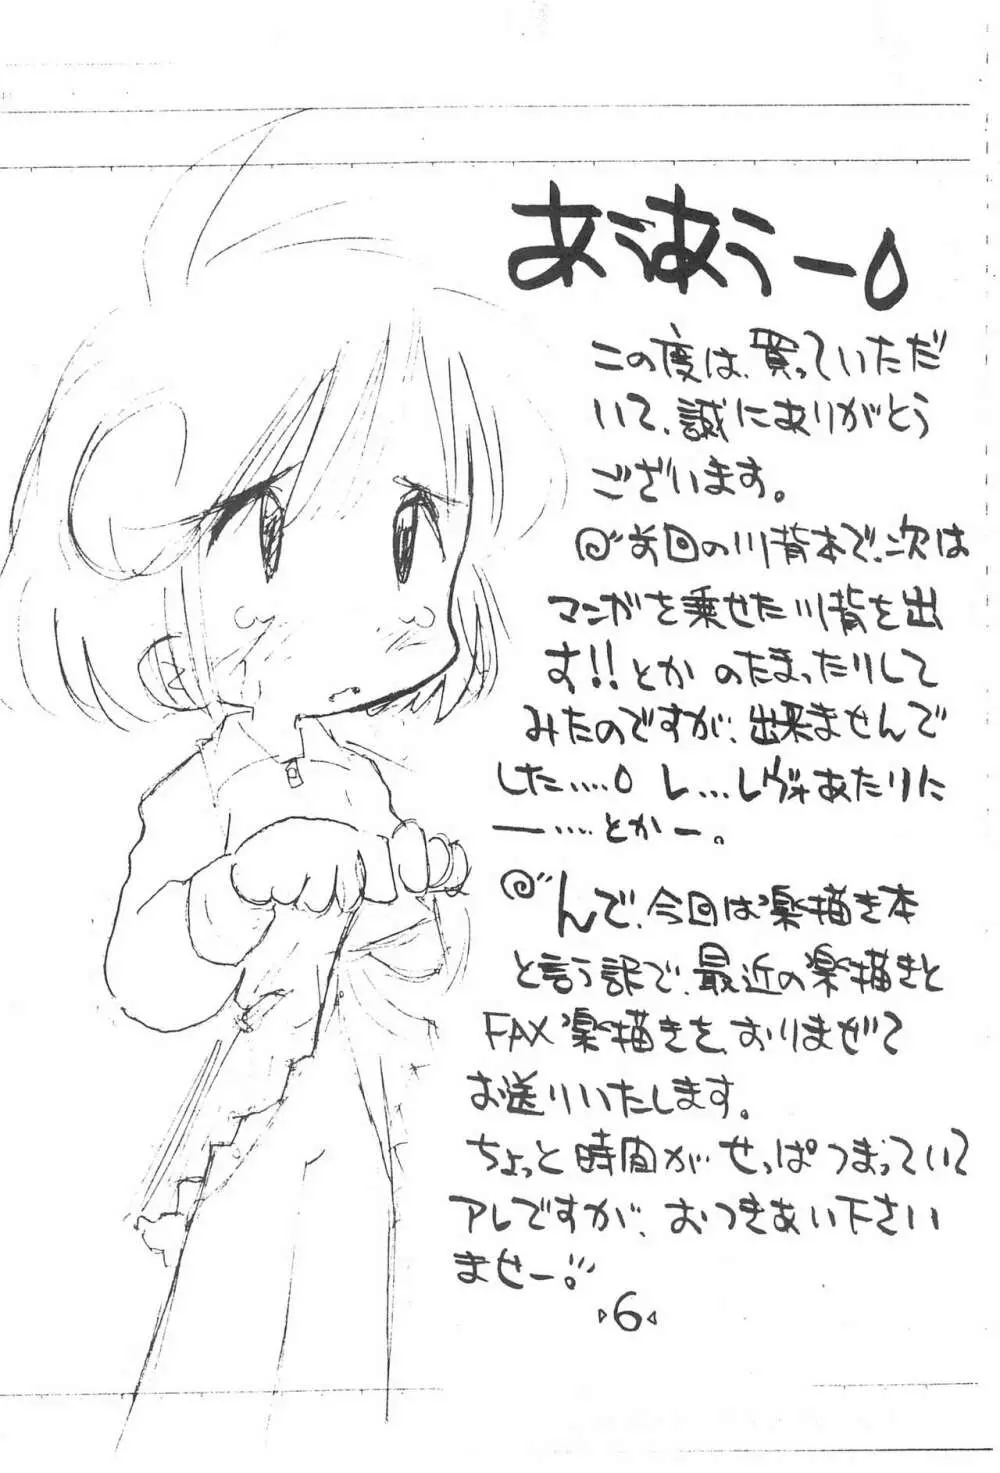 あうあうー
この度は、買っていただ
いて、誠にありがとう
ございます。
前回の川背本で、次は
マンガを乗せた川背を出
す!!とか のたまったりして
みたのですが、出来ませんで
した…… レ…レヴォあたりに
ー……とかー。
んで、今回は楽描き本
と言う訳で、最近の楽描きと
FAX楽描きを、おりまぜて
お送りいたします。
ちょっと時間がせっぱつまっていて
アレですが、おつきあい下さい
ませー。
6